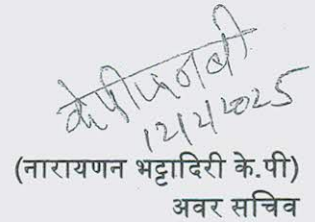 केपीएनबी
12/2/2025
(नारायणन भट्टादिरी के.पी)
अवर सचिव